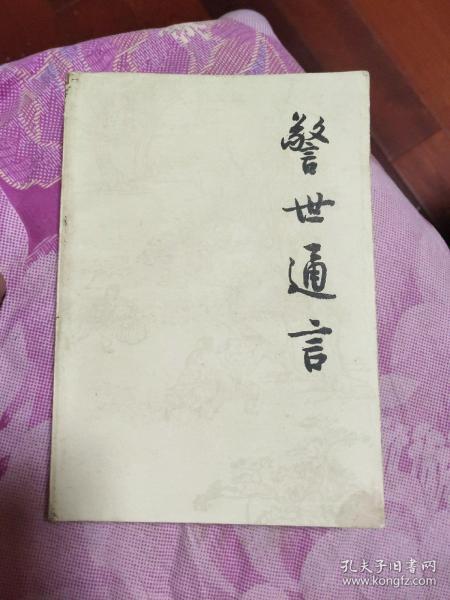 警世通言
孔夫子旧书网
www.kongfz.com